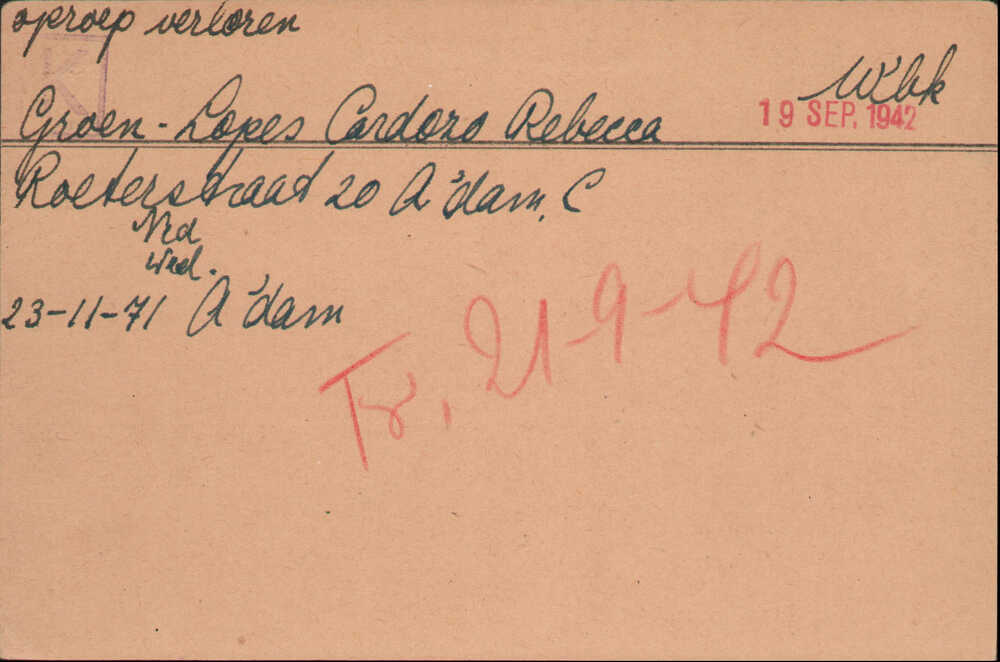 oproep verloren
K
Wbk
19 SEP. 1942
Groen - Lopes Cardozo Rebecca
Roeterstraat 20 A'dam. C
Ned
wed.
23-11-71 A'dam
Tr. 21-9-42